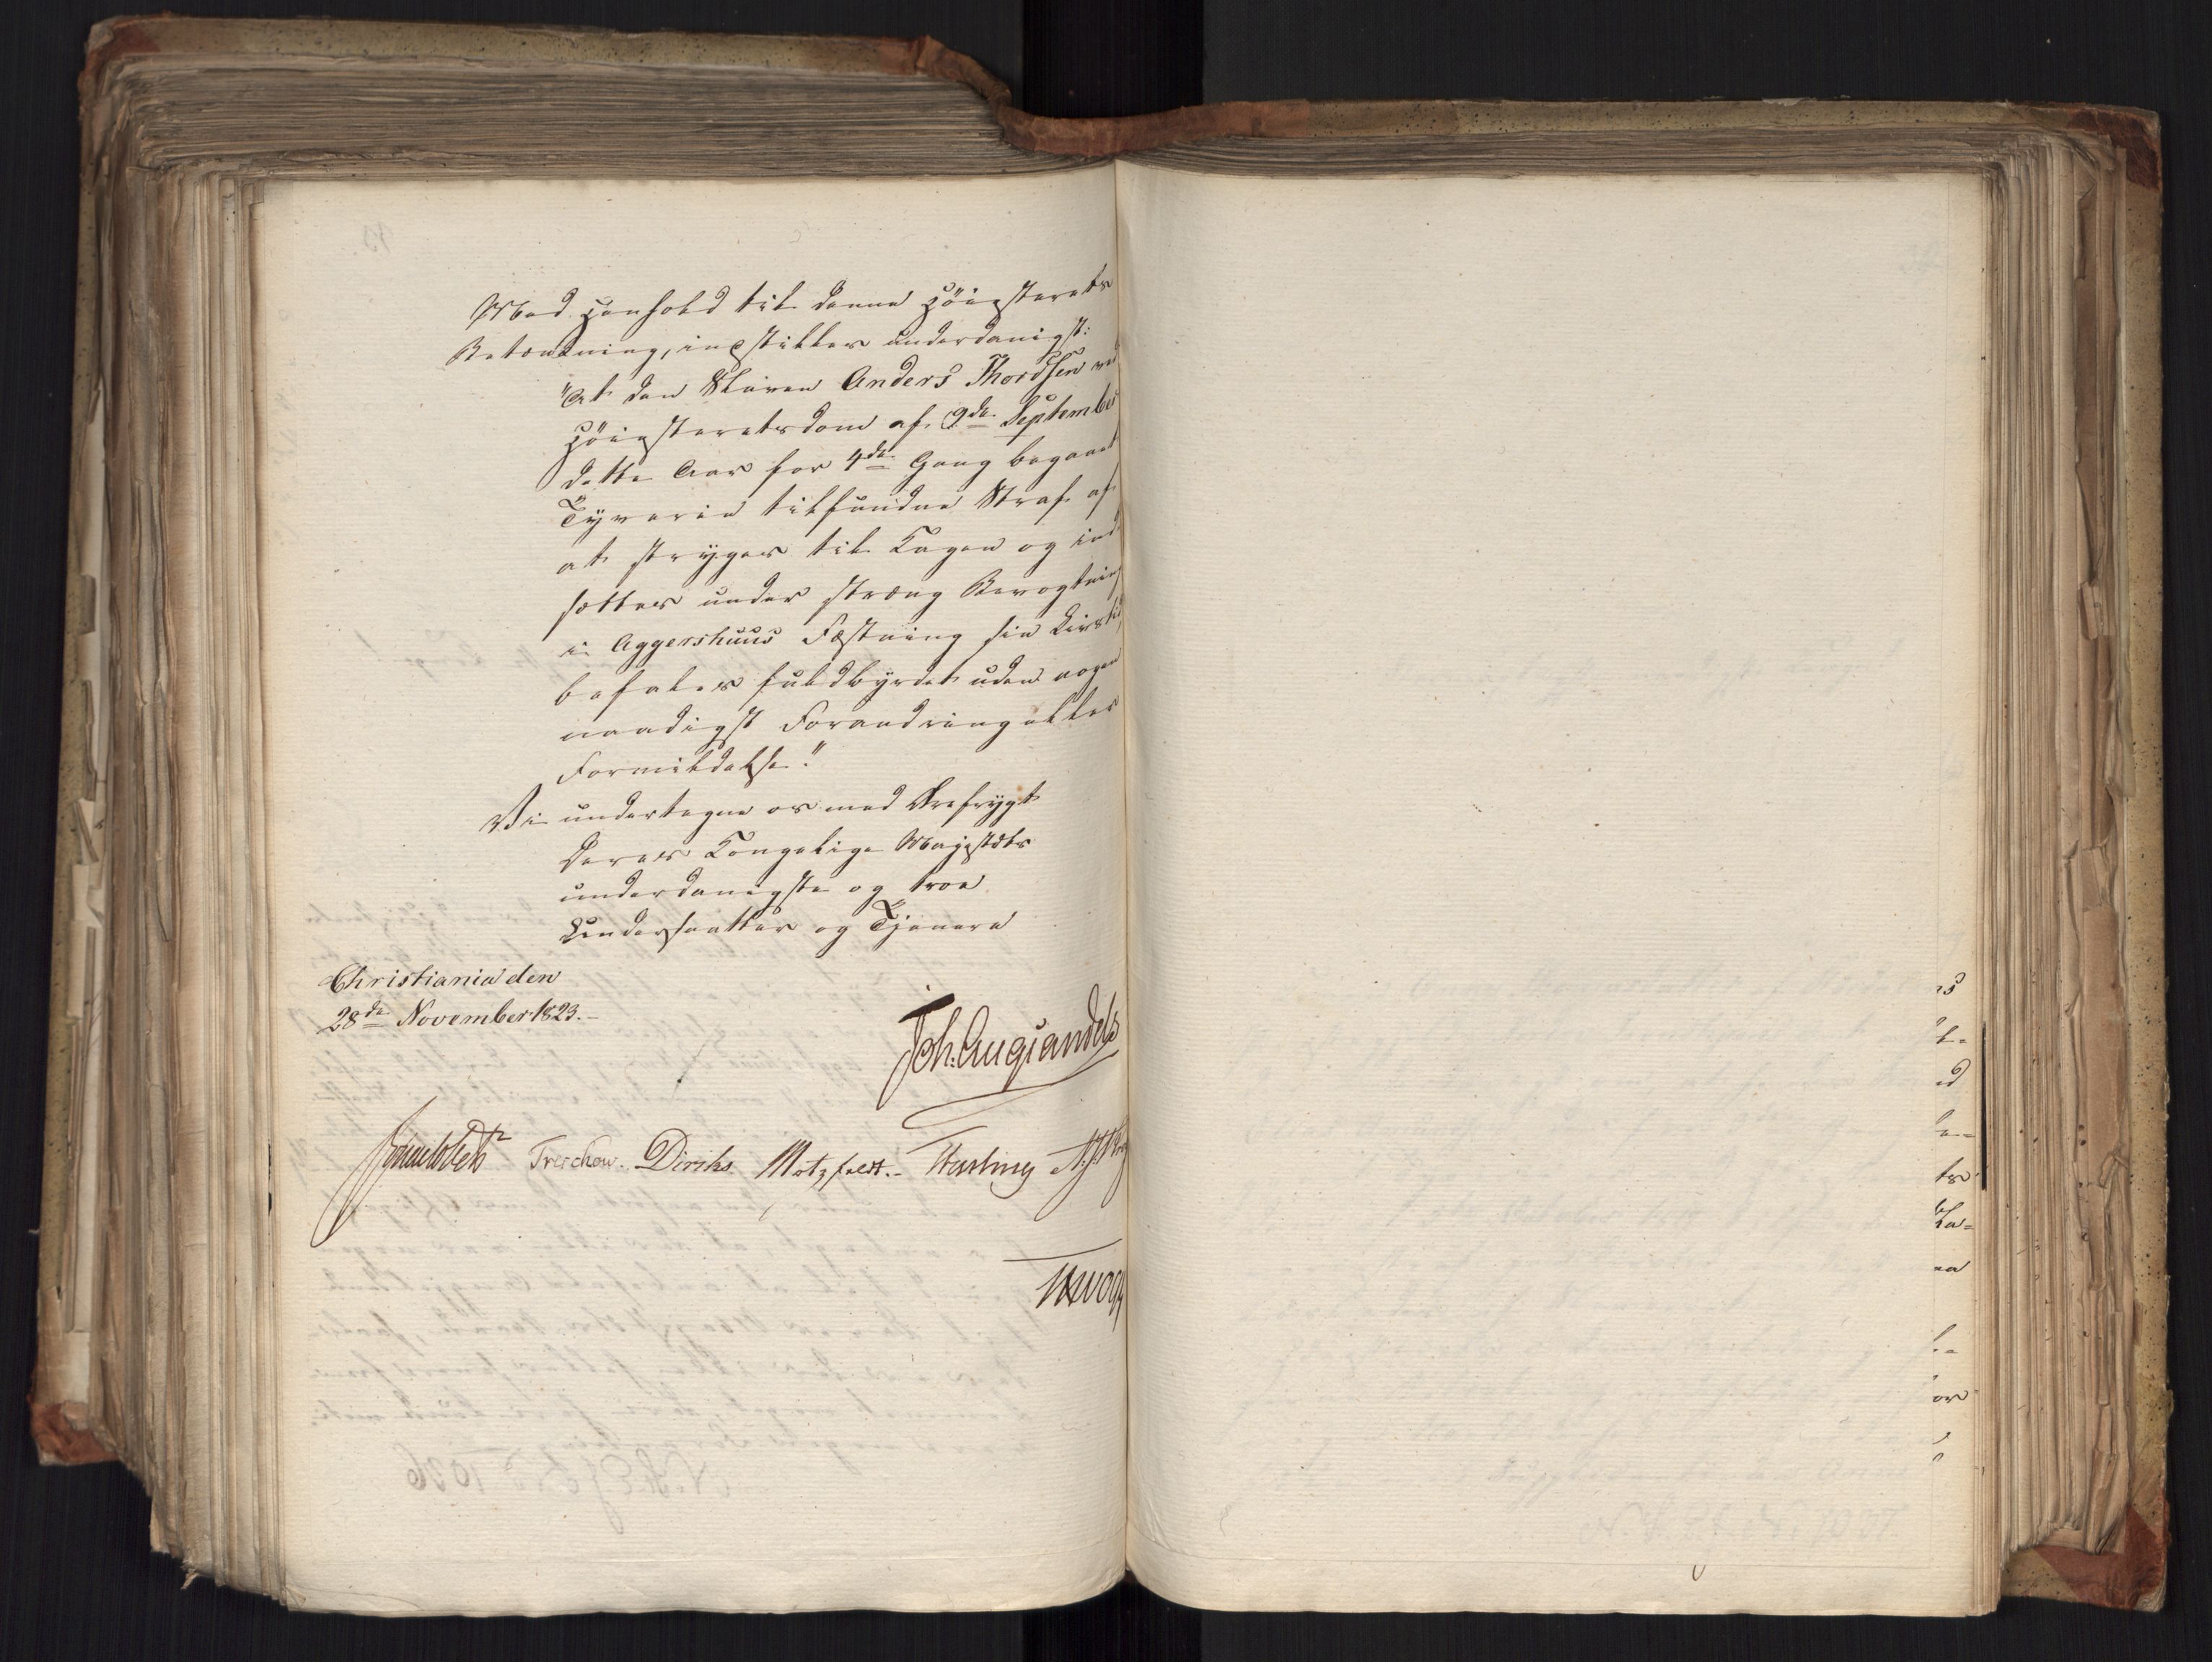 Med Henhold til denne Höiesterets
Betænkning, indstilles underdanigst:
"At den Slaven Anders Thordsen ved
Höiesteretsdom af 9de September
dette Aar for 4de Gang begaaet
Tyverie tilfundne Straf af
at stryges til Kagen og ind
sættes under streng Bevogtning
i Aggershuus Fæstning sin Livstid,
befales fuldbyrdet uden nogen
naadigst Forandring eller
Formildelse."
Vi undertegne os med Ærefrygt
Deres Kongelige Majestæts
underdanigste og troe
Undersaatter og Tjenere
Christiania den
28de November 1823.-
Joh: Aug: Sandels
Sommerfeldt Treschow. Diriks. Motzfeldt.- Fasting